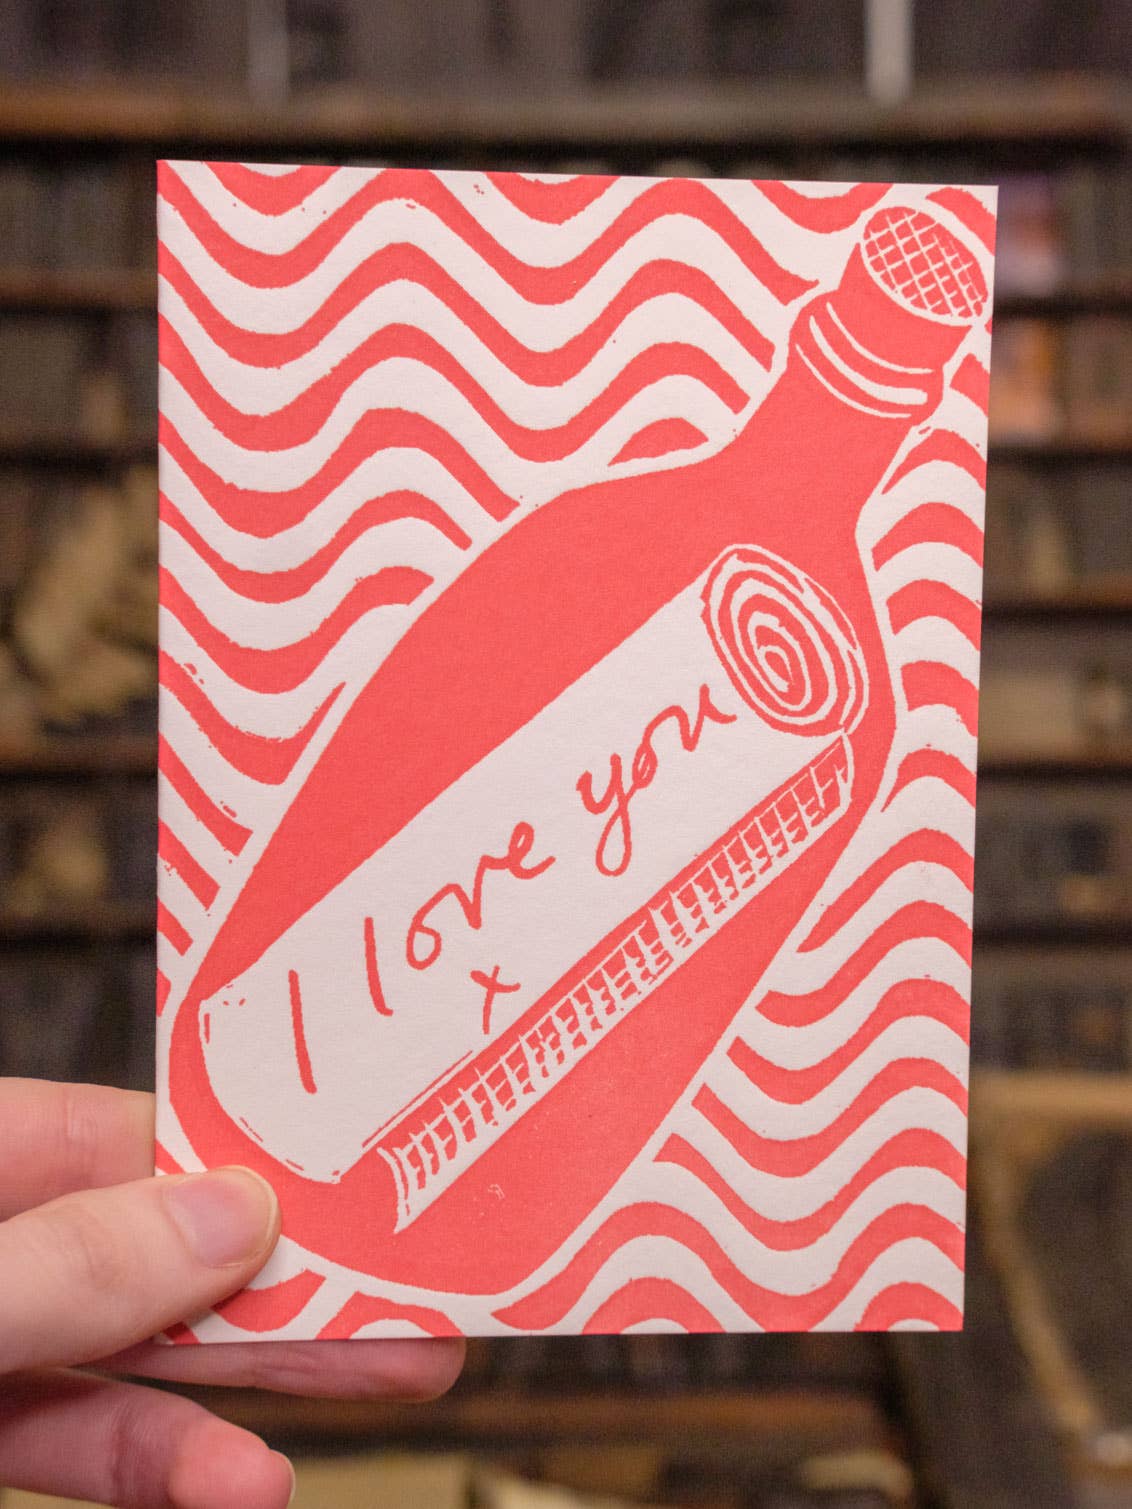 I love you
x